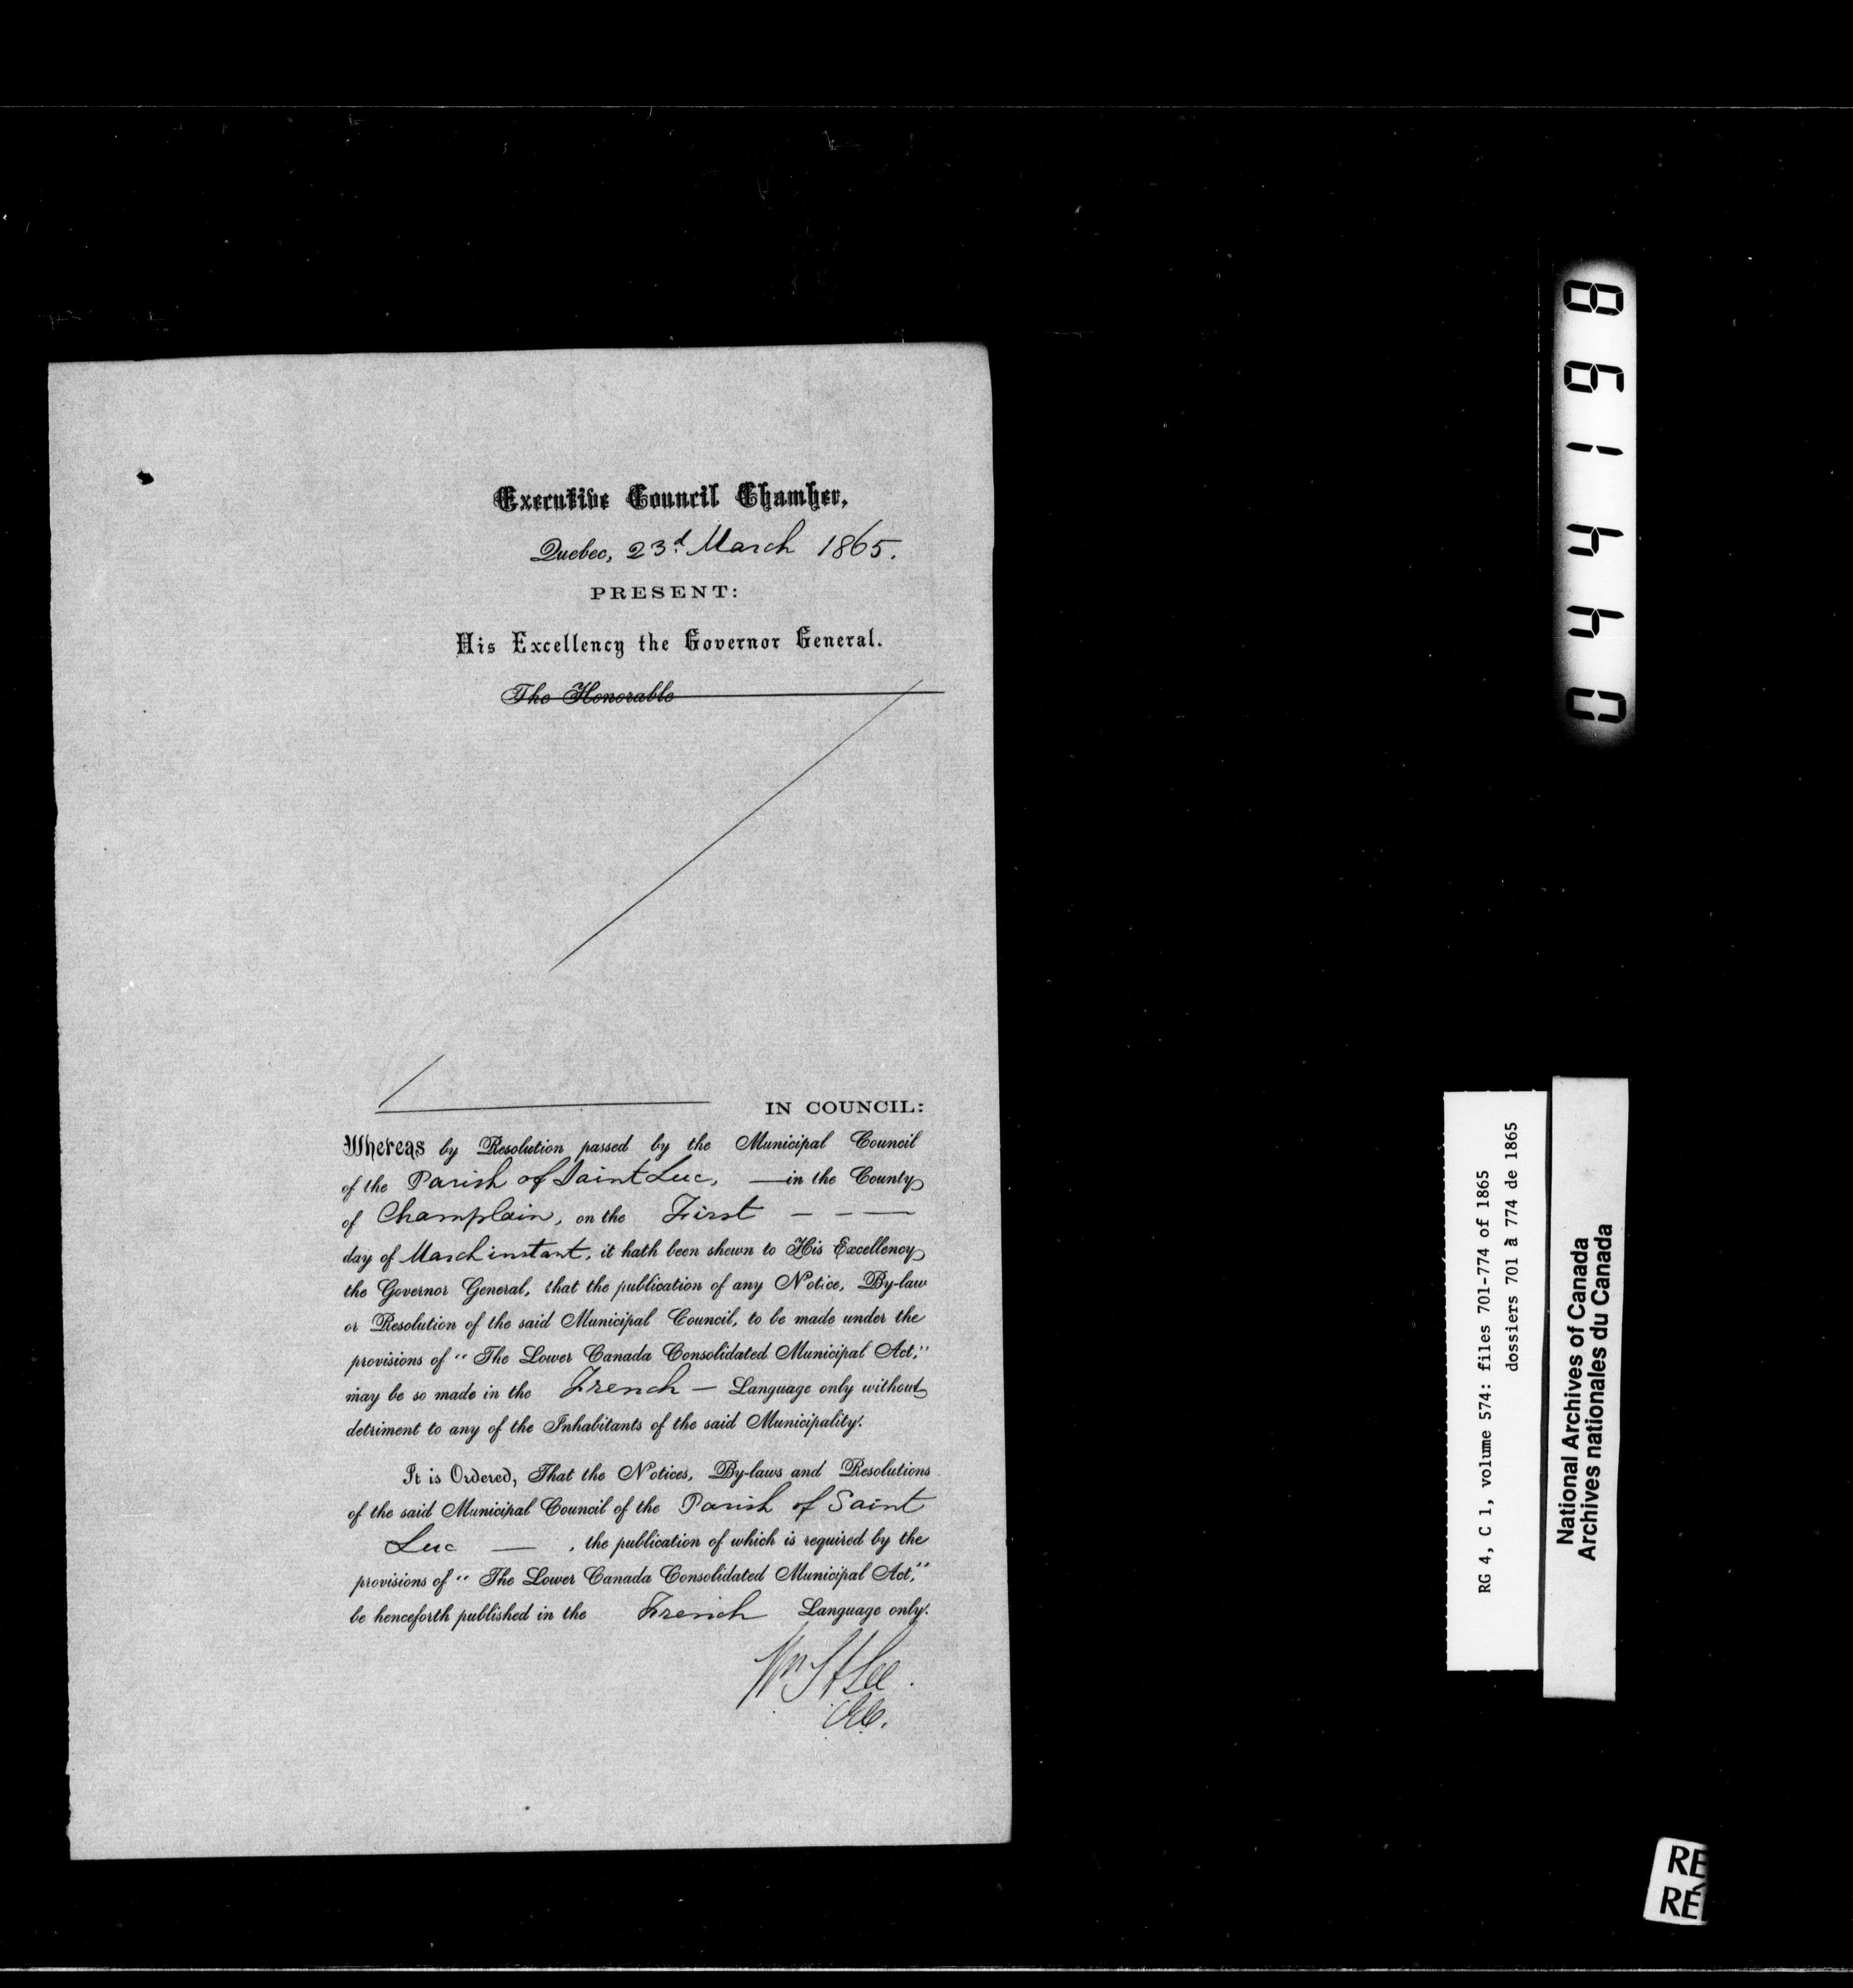 Executive Council Chamber,
Quebec, 23d. March 1865.
PRESENT:
His Excellency the Governor General.
The Honorable
IN COUNCIL:
Whereas by Resolution passed by the Municipal Council
of the Parish of Saint Luc, — in the County
of Champlain, on the First - - —
day of March instant, it hath been shewn to His Excellency
the Governor General, that the publication of any Notice, By-law
or Resolution of the said Municipal Council, to be made under the
provisions of "The Lower Canada Consolidated Municipal Act,"
may be so made in the French — Language only without
detriment to any of the Inhabitants of the said Municipality.
It is Ordered, That the Notices, By-laws and Resolutions
of the said Municipal Council of the Parish of Saint
Luc — , the publication of which is required by the
provisions of "The Lower Canada Consolidated Municipal Act,"
be henceforth published in the French Language only.
Wm H Lee.
044198
RG 4, C 1, volume 574: files 701-774 of 1865
dossiers 701 à 774 de 1865
National Archives of Canada
Archives nationales du Canada
RE
RÉ